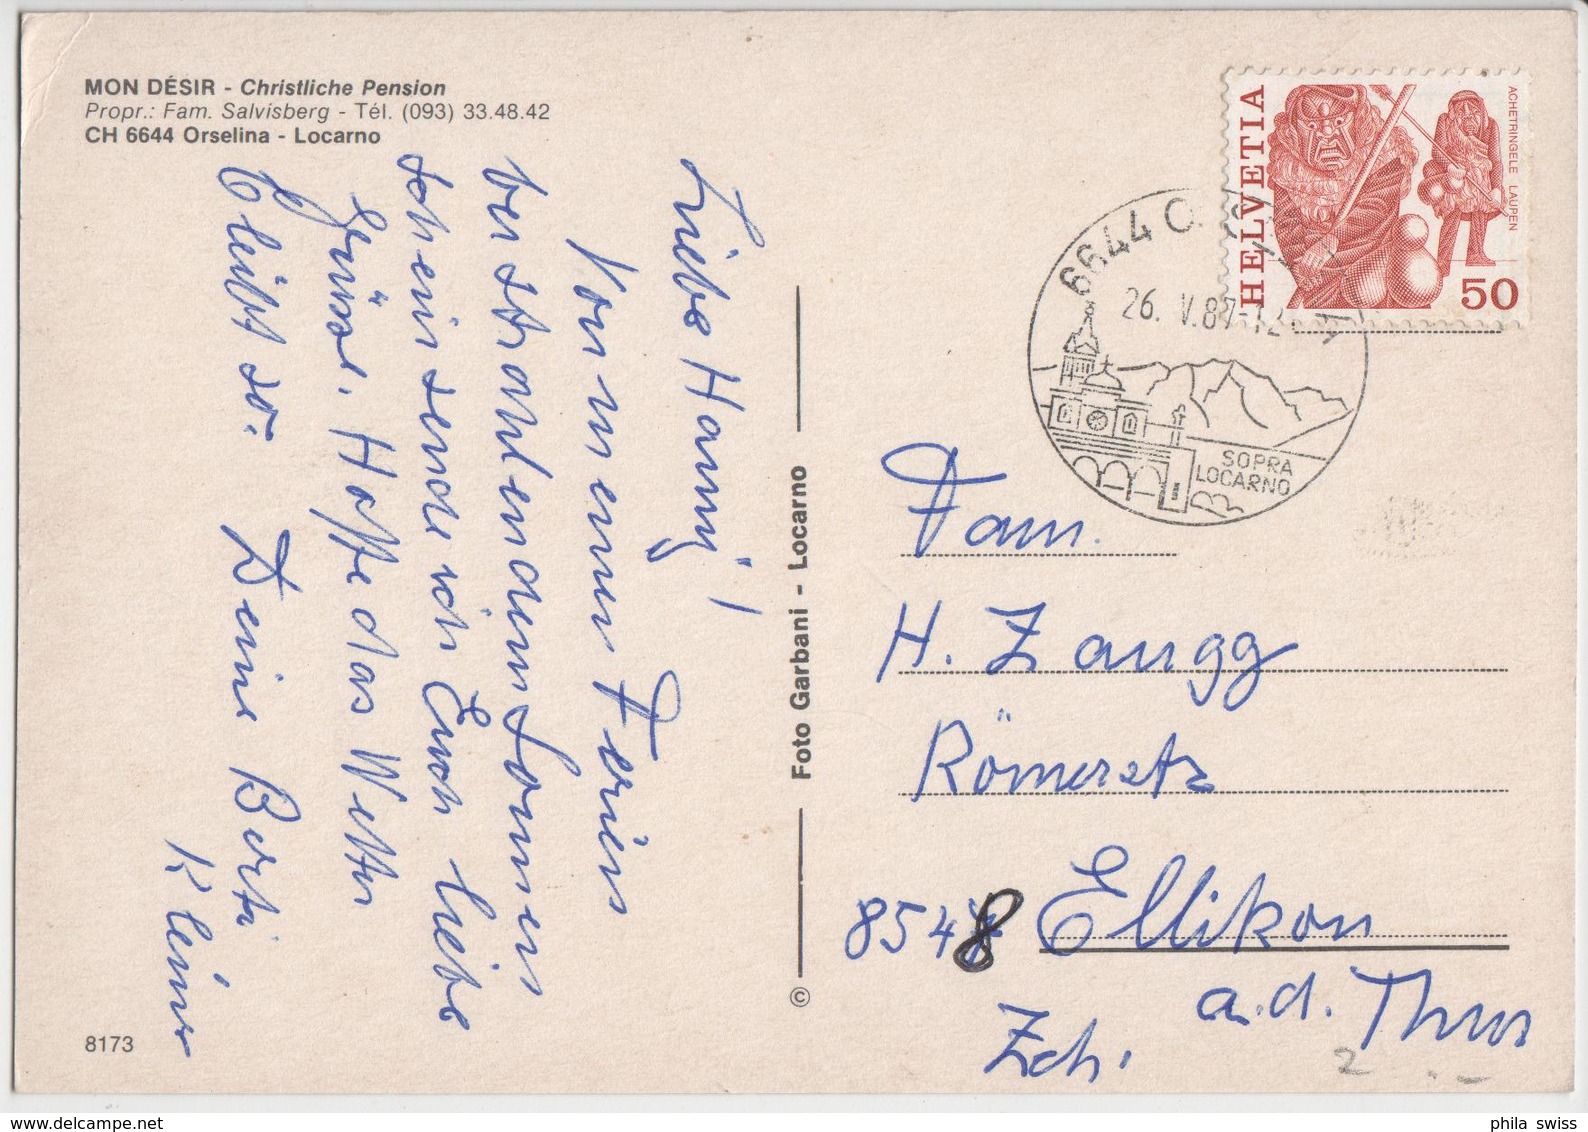 MON DÉSIR - Christliche Pension
Propr.: Fam. Salvisberg - Tél. (093) 33.48.42
CH 6644 Orselina - Locarno
Liebe Hanny!
Von meinen Ferien
bei strahlendem Sonnen
schein sende ich Euch liebe
Grüsse. Hoffe das Wetter
bleibt so. Deine Berti
Kleiner
8173
Foto Garbani - Locarno
©
HELVETIA
ACHETRINGELE LAUPEN
50
6644
26. V. 87-12
SOPRA
LOCARNO
Fam.
H. Zaugg
Römerstr
8548 Ellikon
a.d. Thur
Zch.
2
phila swiss